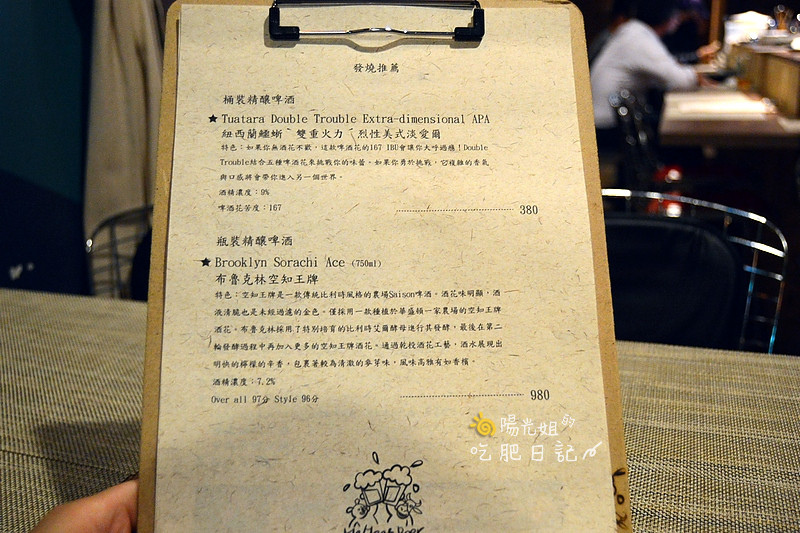 發燒推薦
桶裝精釀啤酒
★ Tuatara Double Trouble Extra-dimensional APA
紐西蘭鱷蜥~雙重火力~烈性美式淡愛爾
特色:如果你無酒花不歡,這款啤酒花的167 IBU會讓你大呼過癮!Double
Trouble結合五種啤酒花來挑戰你的味蕾。如果你勇於挑戰,它複雜的香氣
與口感將會帶你進入另一個世界。
酒精濃度:9%
啤酒花苦度:167
380
瓶裝精釀啤酒
★ Brooklyn Sorachi Ace (750ml)
布魯克林空知王牌
特色:空知王牌是一款傳統比利時風格的農場Saison啤酒。酒花味明顯,酒
液清脆也是未經過濾的金色。僅採用一款種植於華盛頓一家農場的空知王牌
酒花。布魯克林採用了特別培育的比利時艾爾酵母進行其發酵,最後在第二
輪發酵過程中再加入更多的空知王牌酒花。通過乾投酒花工藝,酒水展現出
明快的檸檬的辛香,包裹著較為清澈的麥芽味,風味高雅有如香檳。
酒精濃度:7.2%
Over all 97分 Style 96分
980
陽光姐的
吃肥日記